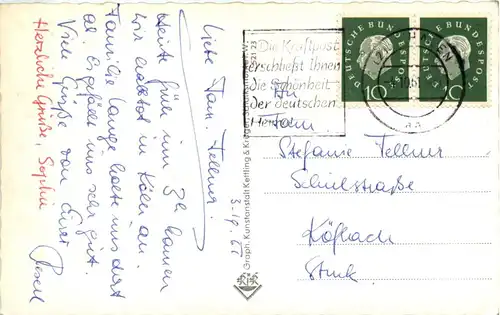 Liebe Fam. Fellner.
Heute früh um 3h kamen
wir in Köln an.
Familie Lange holte uns dort
ab. Es gefällt uns sehr gut.
Viele Grüße von Eurer
Herzliche Grüße, Sophie
Graph. Kunstanstalt Kettling & Krüger, Schalksmühle i. W.
Die Kraftpost
erschließt Ihnen
die Schönheit
der deutschen
Heimat
DEUTSCHE BUNDESPOST
10
DEUTSCHE BUNDESPOST
10
An
Fam
Stefanie Fellner
Schulstraße
Köflach